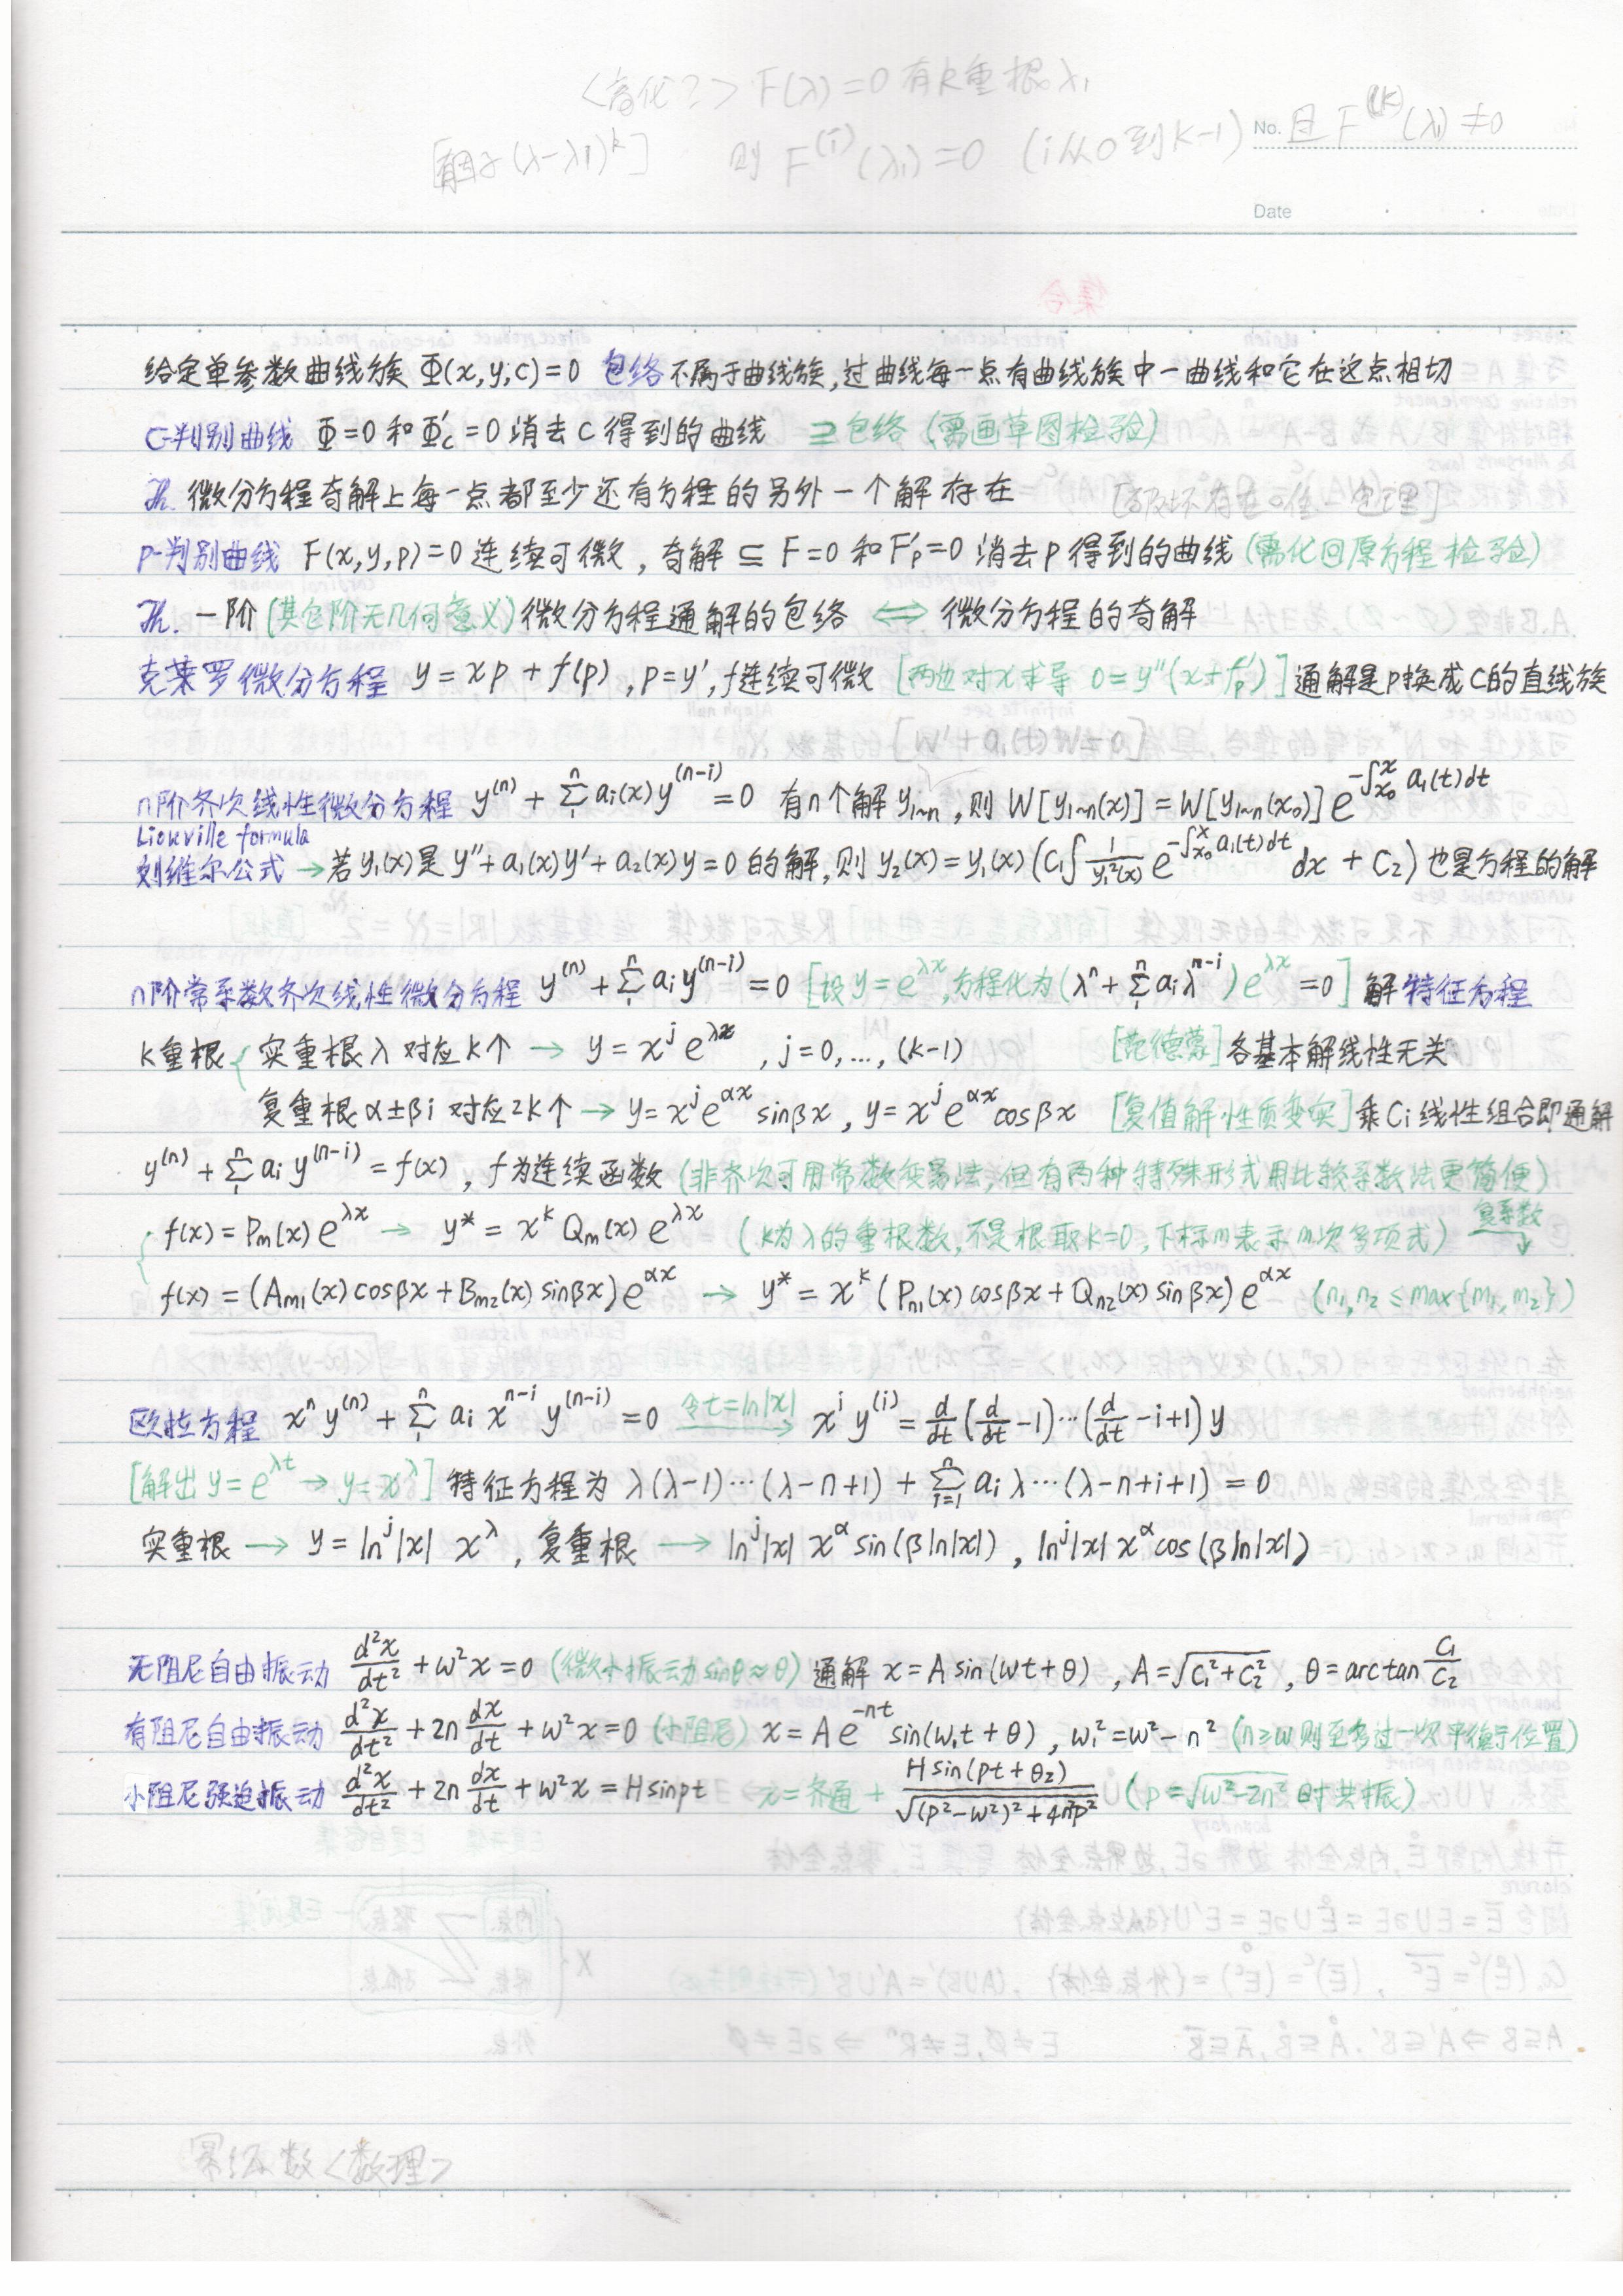 <高代?> F(λ)=0 有k重根 λ₁
[有因子(λ-λ₁)^k] 则 F^(i)(λ₁)=0 (i从0到k-1) 且 F^(k)(λ₁)≠0
No.
Date
给定单参数曲线族 Φ(x,y,c)=0 包络 不属于曲线族,过曲线每一点有曲线族中一曲线和它在这点相切
C-判别曲线 Φ=0 和 Φ'c=0 消去 C 得到的曲线 ⊇包络 (需画草图检验)
Th. 微分方程奇解上每一点都至少还有方程的另外一个解存在 [破坏存在唯一定理]
P-判别曲线 F(x,y,p)=0 连续可微, 奇解 ⊆ F=0 和 F'p=0 消去 p 得到的曲线 (需代回原方程检验)
Th. 一阶 (其它阶无几何意义) 微分方程通解的包络 ⟺ 微分方程的奇解
克莱罗微分方程 y = xp + f(p), p=y', f连续可微 [两边对x求导 0=y''(x+f'p)] 通解是p换成C的直线族
[W'+a₁(t)W=0]
n阶齐次线性微分方程 y^(n) + Σ₁ⁿ aᵢ(x)y^(n-i) =0 有n个解 y₁~ₙ, 则 W[y₁~ₙ(x)] = W[y₁~ₙ(x₀)] e^(-∫_{x₀}^{x} a₁(t)dt)
Liouville formula
刘维尔公式 → 若y₁(x)是 y''+a₁(x)y'+a₂(x)y=0 的解, 则 y₂(x)=y₁(x) (C₁∫ 1/y₁²(x) e^(-∫_{x₀}^{x} a₁(t)dt) dx + C₂) 也是方程的解
n阶常系数齐次线性微分方程 y^(n) + Σ₁ⁿ aᵢ y^(n-i) =0 [设 y=e^(λx), 方程化为 (λⁿ+Σ₁ⁿ aᵢλ^(n-i)) e^(λx) =0] 解特征方程
k重根 { 实重根 λ 对应k个 → y = x^j e^(λx), j=0,...,(k-1) [范德蒙] 各基本解线性无关
复重根 α±βi 对应2k个 → y = x^j e^(αx) sinβx, y = x^j e^(αx) cosβx [复值解性质变实] 乘Cᵢ线性组合即通解
y^(n) + Σ₁ⁿ aᵢ y^(n-i) = f(x), f为连续函数 (非齐次可用常数变易法,但有两种特殊形式用比较系数法更简便)
{ f(x) = Pₘ(x) e^(λx) → y* = x^k Qₘ(x) e^(λx) (k为λ的重根数,不是根取k=0, 下标m表示m次多项式) 复系数↓
f(x) = (Aₘ₁(x) cosβx + Bₘ₂(x) sinβx) e^(αx) → y* = x^k (Pₙ₁(x) cosβx + Qₙ₂(x) sinβx) e^(αx) (n₁,n₂ ≤ max{m₁,m₂})
欧拉方程 xⁿ y^(n) + Σ₁ⁿ aᵢ x^(n-i) y^(n-i) =0 令t=ln|x| → x^i y^(i) = d/dt (d/dt -1)⋯(d/dt -i+1) y
[解出 y=e^(λt) → y=x^λ] 特征方程为 λ(λ-1)⋯(λ-n+1) + Σ_{i=1}^{n} aᵢ λ⋯(λ-n+i+1) = 0
实重根 → y = ln^j|x| x^λ, 复重根 → ln^j|x| x^α sin(βln|x|), ln^j|x| x^α cos(βln|x|)
无阻尼自由振动 d²x/dt² + ω²x=0 (微小振动 sinθ≈θ) 通解 x = A sin(ωt+θ), A=√(C₁²+C₂²), θ=arctan C₁/C₂
有阻尼自由振动 d²x/dt² + 2n dx/dt + ω²x=0 (小阻尼) x = A e^(-nt) sin(ω₁t+θ), ω₁²=ω²-n² (n≥ω 则至多过一次平衡位置)
小阻尼强迫振动 d²x/dt² + 2n dx/dt + ω²x = H sinpt x=齐通 + H sin(pt+θ₂)/√((p²-ω²)²+4n²p²) (p=√(ω²-2n²) 时共振)
幂级数<数理>